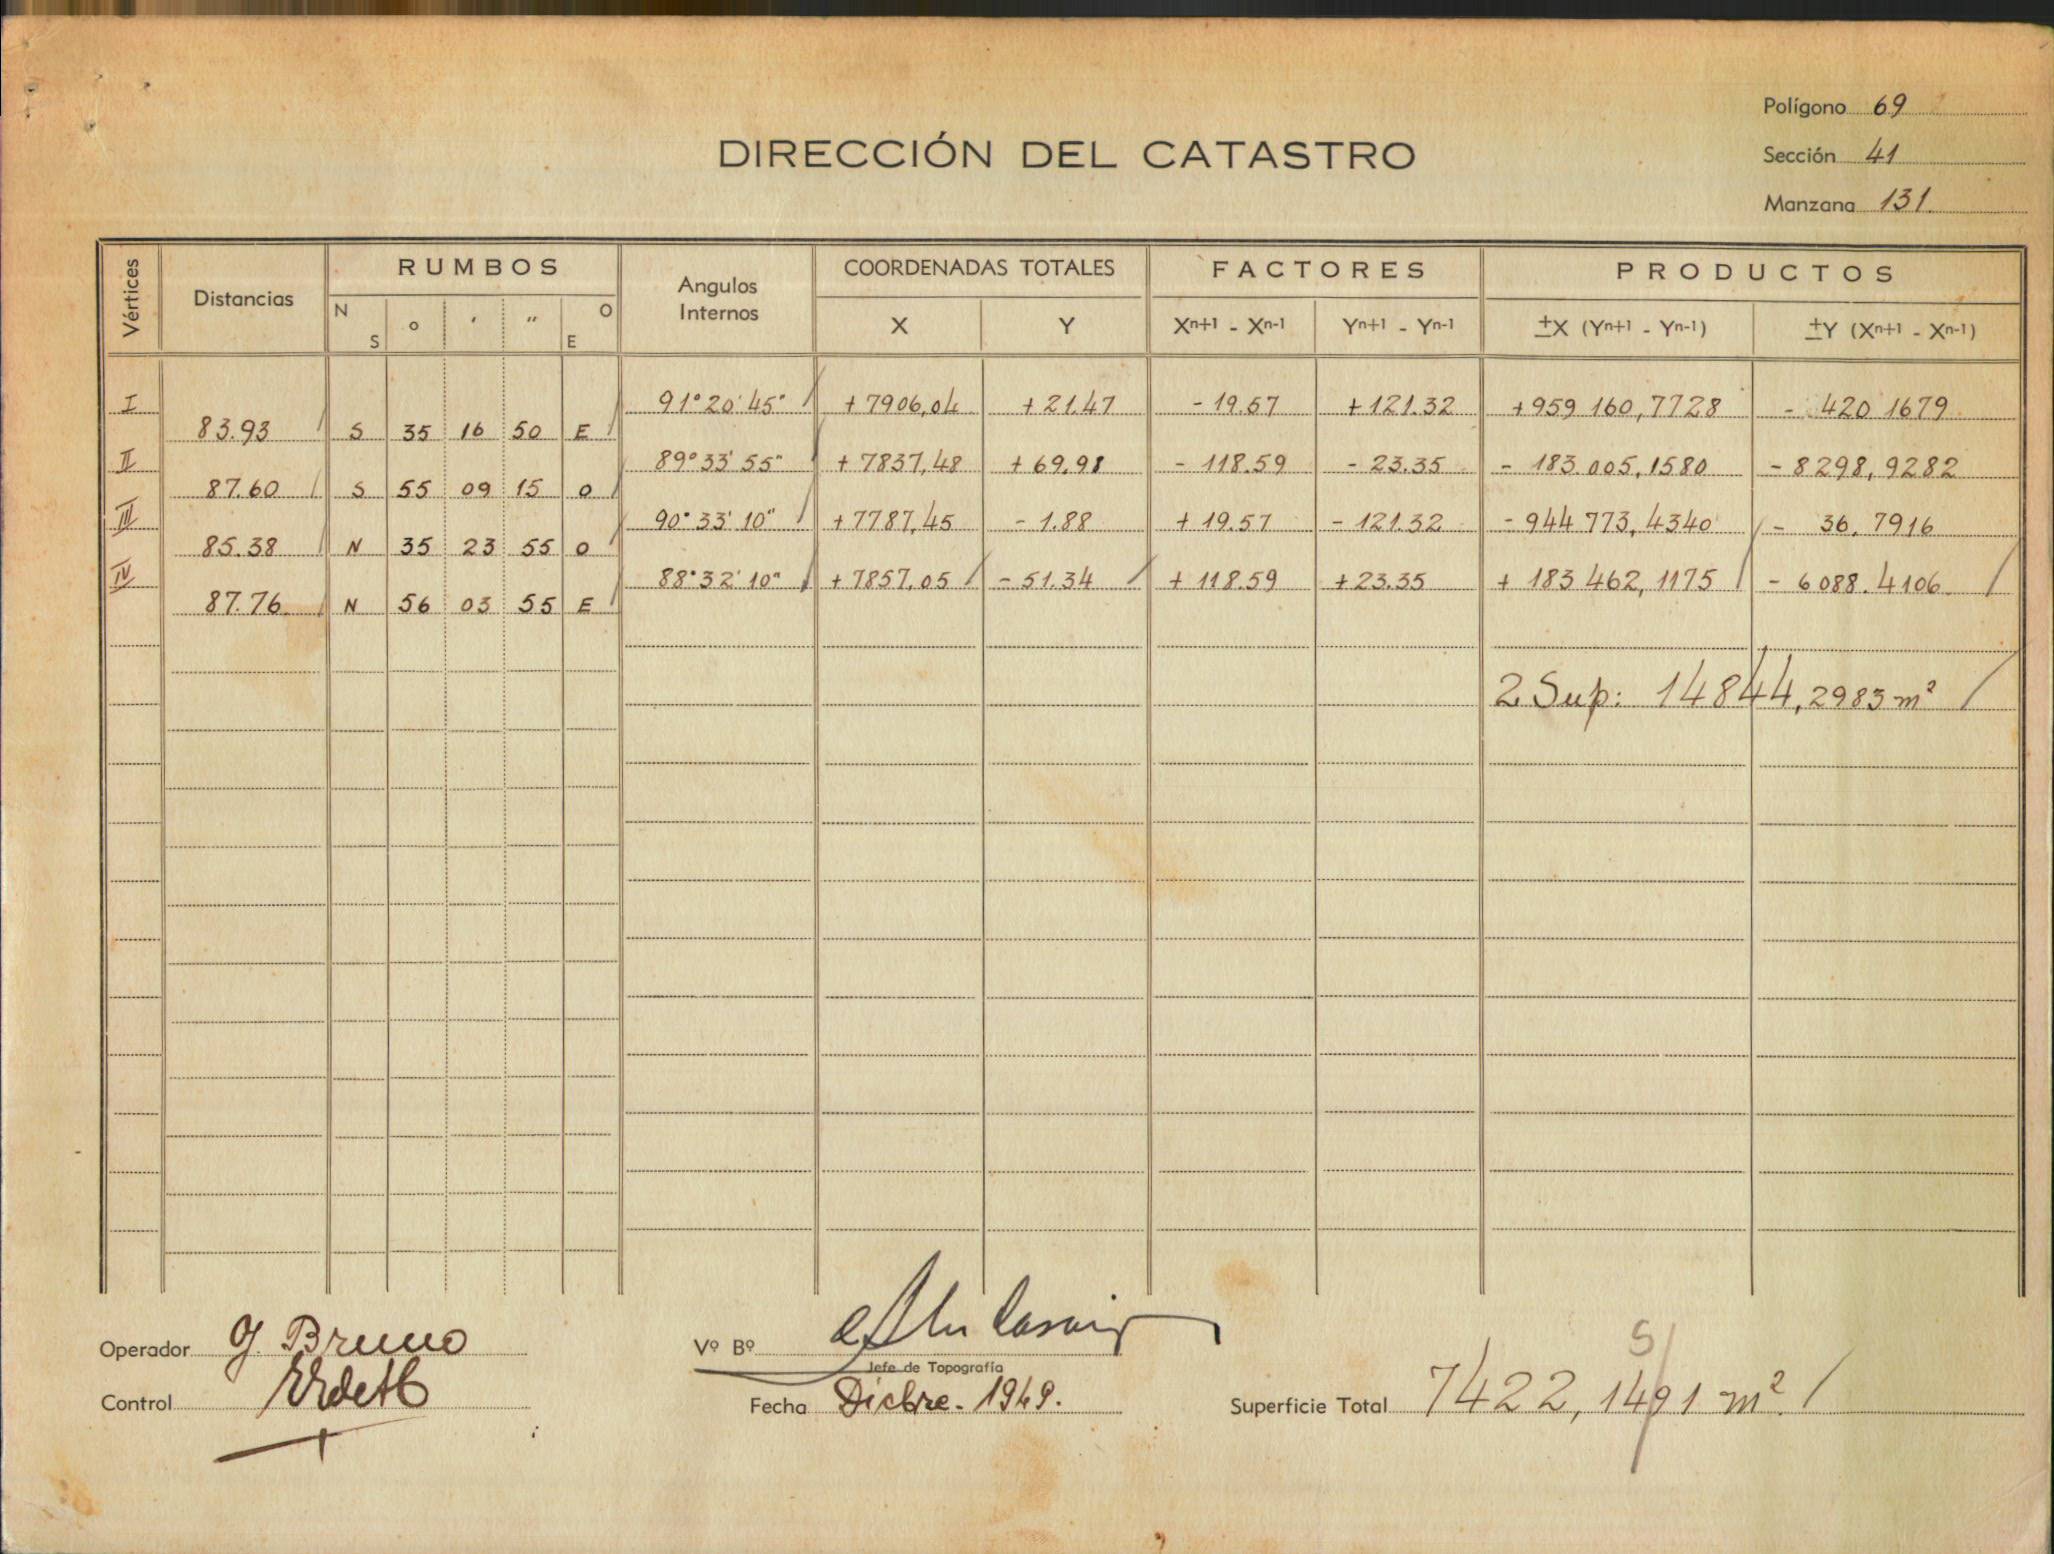 Polígono 69
DIRECCIÓN DEL CATASTRO
Sección 41
Manzana 131.
Vértices Distancias RUMBOS Angulos Internos COORDENADAS TOTALES FACTORES PRODUCTOS
N S o ' '' O E X Y Xn+1 - Xn-1 Yn+1 - Yn-1 ±X (Yn+1 - Yn-1) ±Y (Xn+1 - Xn-1)
I 91°20'45" +7906,04 +21.47 -19.57 +121.32 +959 160,7728 - 420 1679
83.93 S 35 16 50 E
II 89°33'55" +7837,48 +69.98 -118.59 -23.35 -183.005,1580 -8298,9282
87.60 S 55 09 15 O
III 90°33'10" +7787,45 -1.88 +19.57 -121.32 -944 773,4340 - 36,7916
85.38 N 35 23 55 O
IV 88°32'10" +7857,05 -51.34 +118.59 +23.35 +183 462,1175 -6088.4106
87.76 N 56 03 55 E
2 Sup: 14844,2983 m²
Operador G. Bruno
Vº Bº
Jefe de Topografía
Control
Fecha Dicbre. 1949.
Superficie Total 7422,1491 m²
5